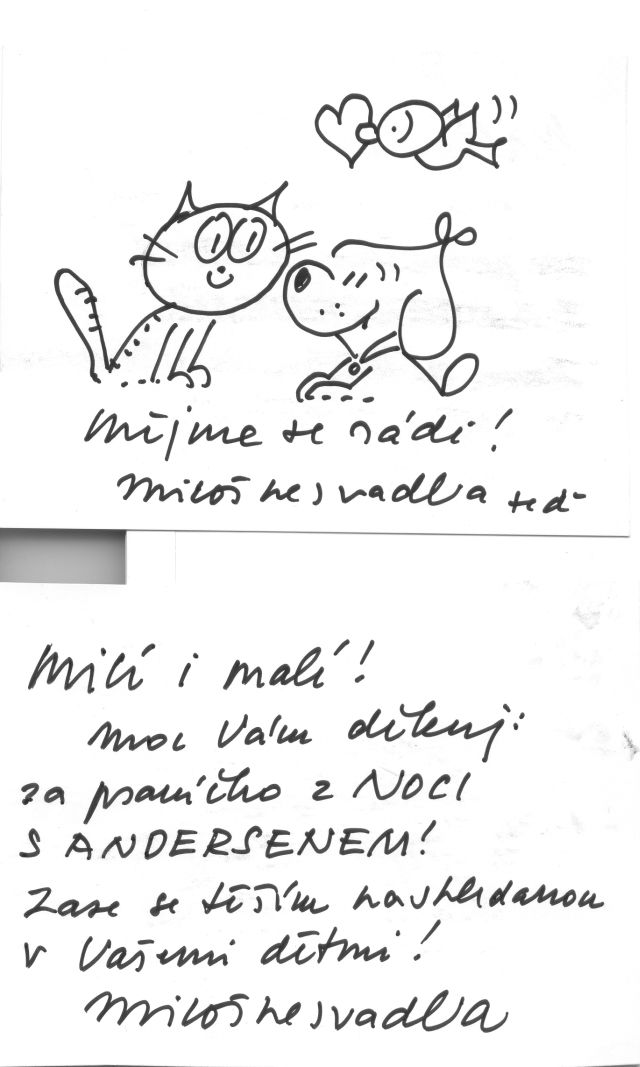 Mějme se rádi!
Miloš Nesvadba teď
Milí i malí!
moc Vám děkuji
za psaníčko z NOCI
S ANDERSENEM!
Zase se těším nashledanou
v Vašemi dětmi!
Miloš Nesvadba